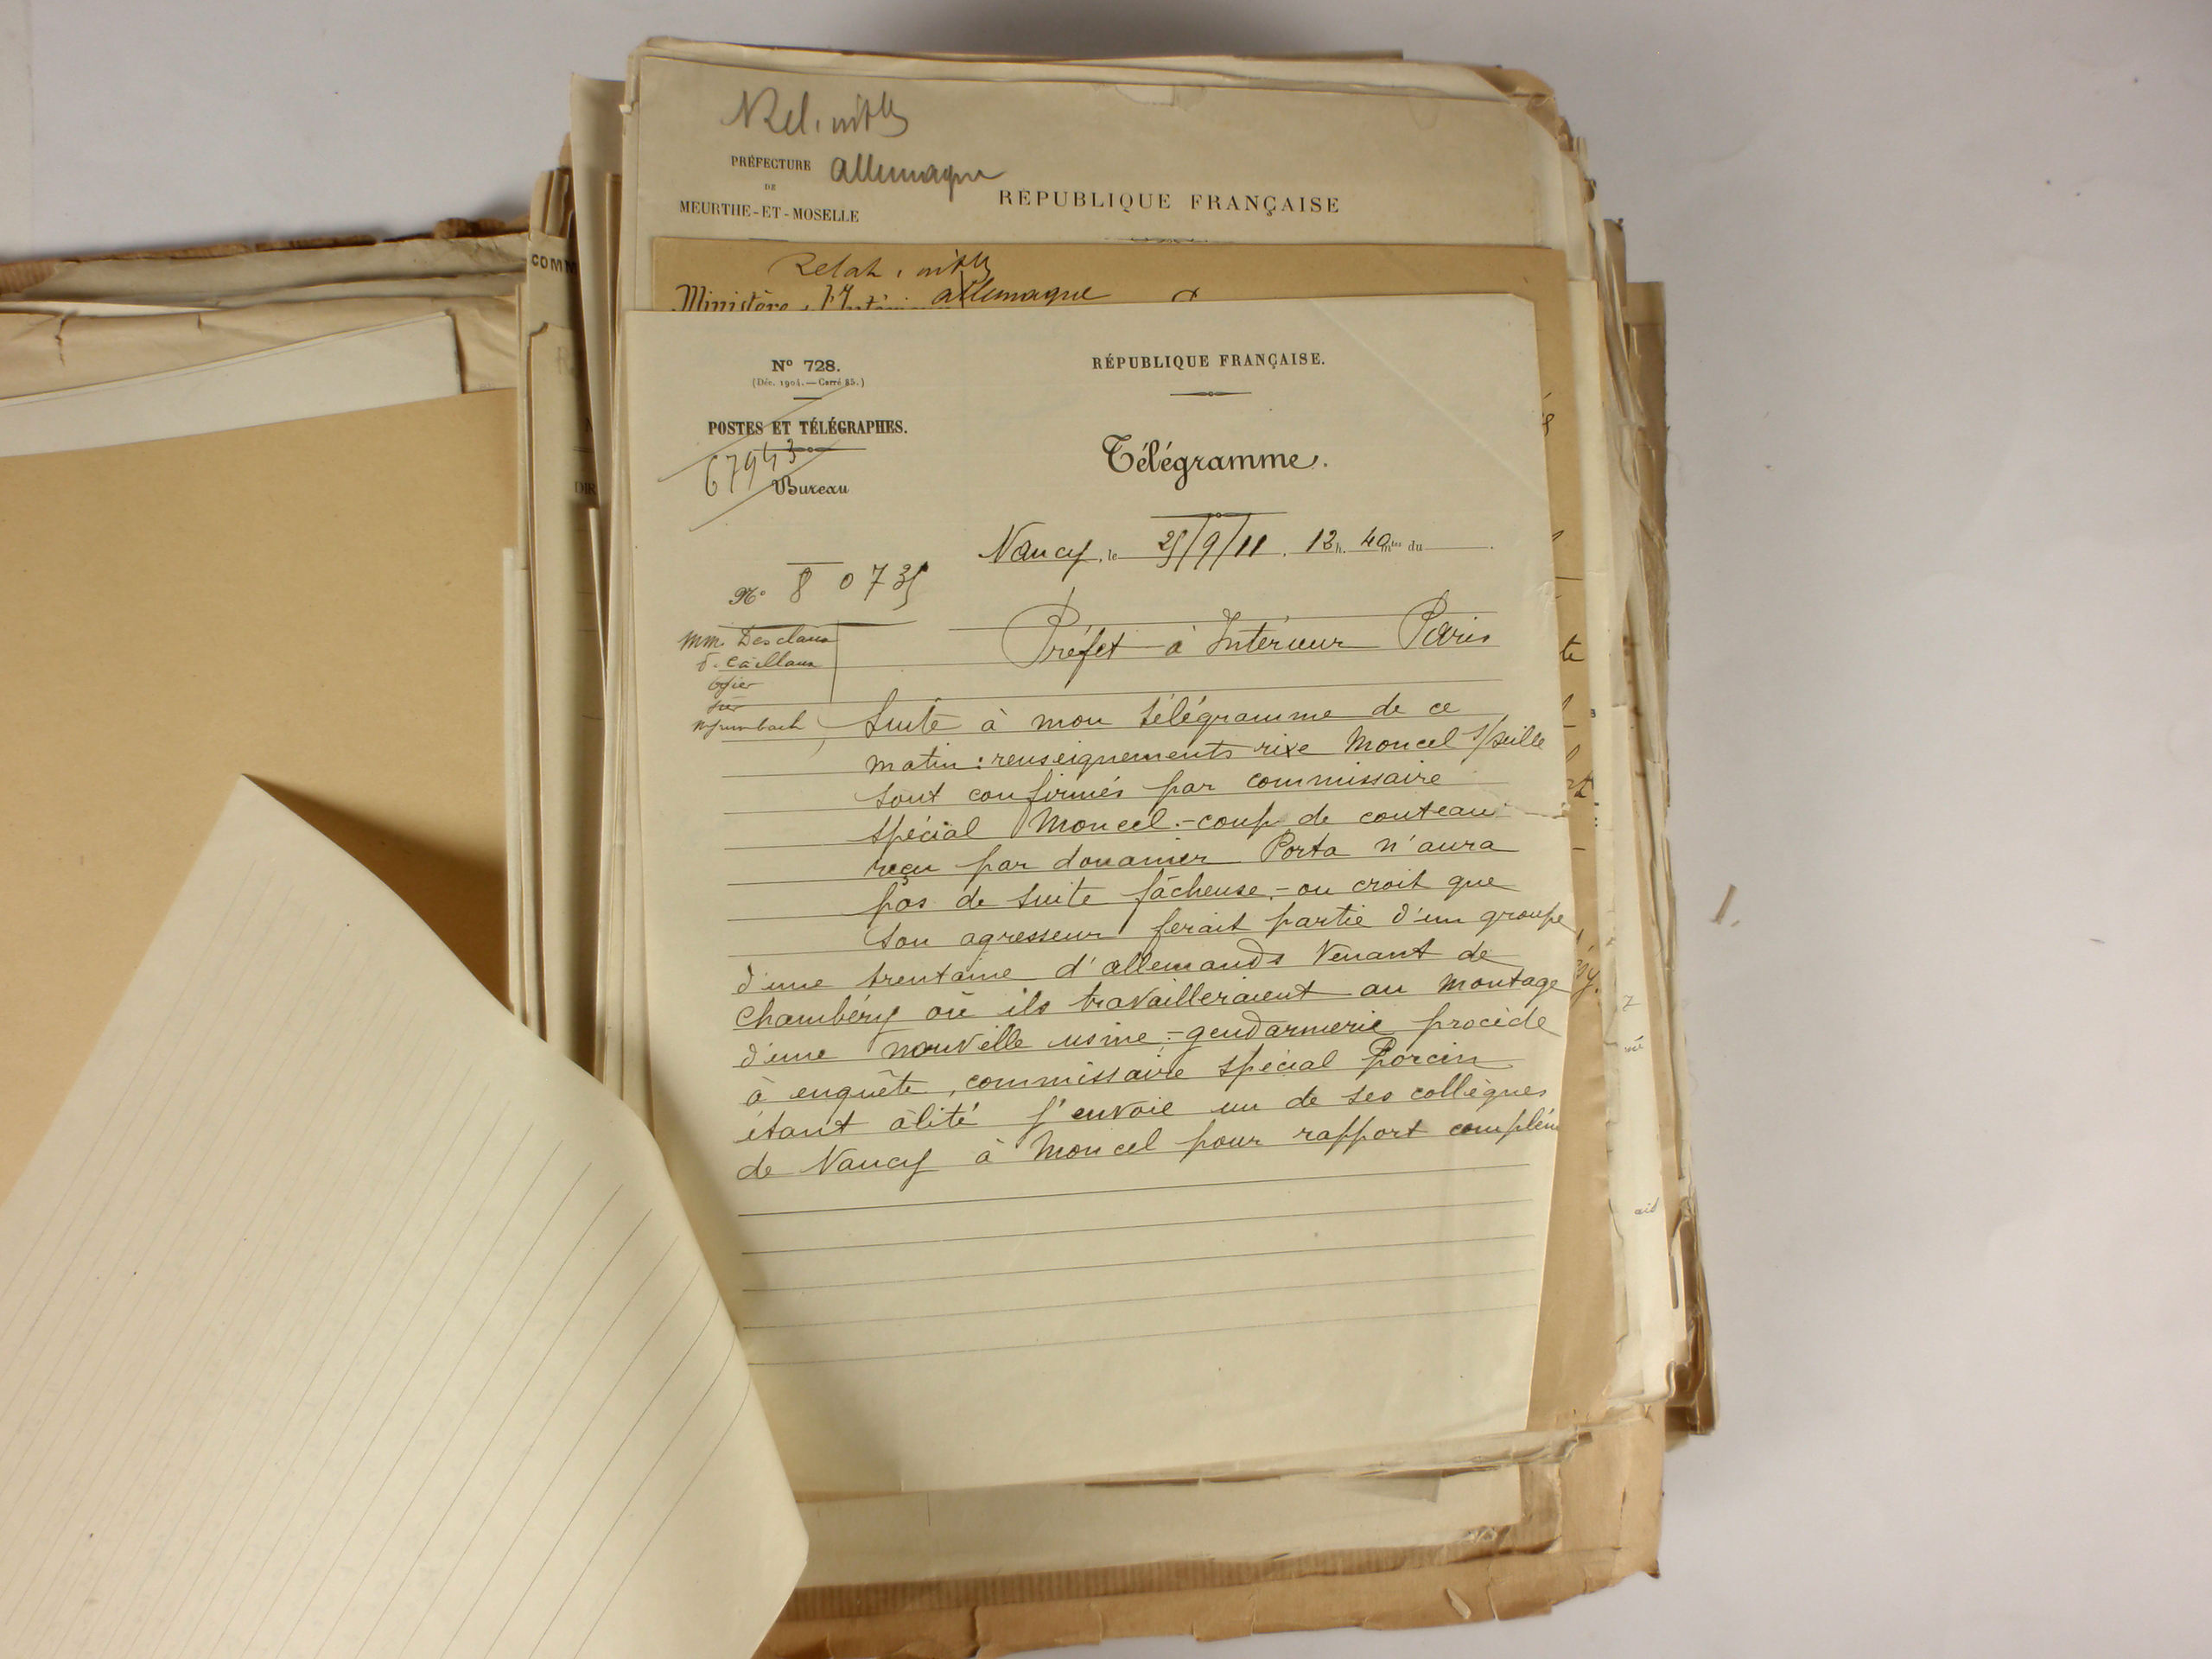 Allemagne
PRÉFECTURE
DE
MEURTHE-ET-MOSELLE
RÉPUBLIQUE FRANÇAISE
Allemagne
Ministère
COMM
DIR
N° 728.
(Déc. 1904. — Carré 85.)
POSTES ET TÉLÉGRAPHES.
67943
Bureau
RÉPUBLIQUE FRANÇAISE.
Télégramme.
Nancy, le 25/9/11. 12h. 40 mtes du
N° 8 0735
MM. Desclaux
Caillaux
Ogier
Préfet à Intérieur Paris
Suite à mon télégramme de ce
matin : renseignements rixe Moncel s/seille
sont confirmés par commissaire
spécial Moncel. - coup de couteau
reçu par douanier Porta n'aura
pas de suite fâcheuse. - on croit que
son agresseur ferait partie d'un groupe
d'une trentaine d'allemands venant de
Chambéry où ils travailleraient au montage
d'une nouvelle usine. = gendarmerie procède
à enquête, commissaire spécial Porcin
étant alité j'envoie un de ses collègues
de Nancy à Moncel pour rapport complém